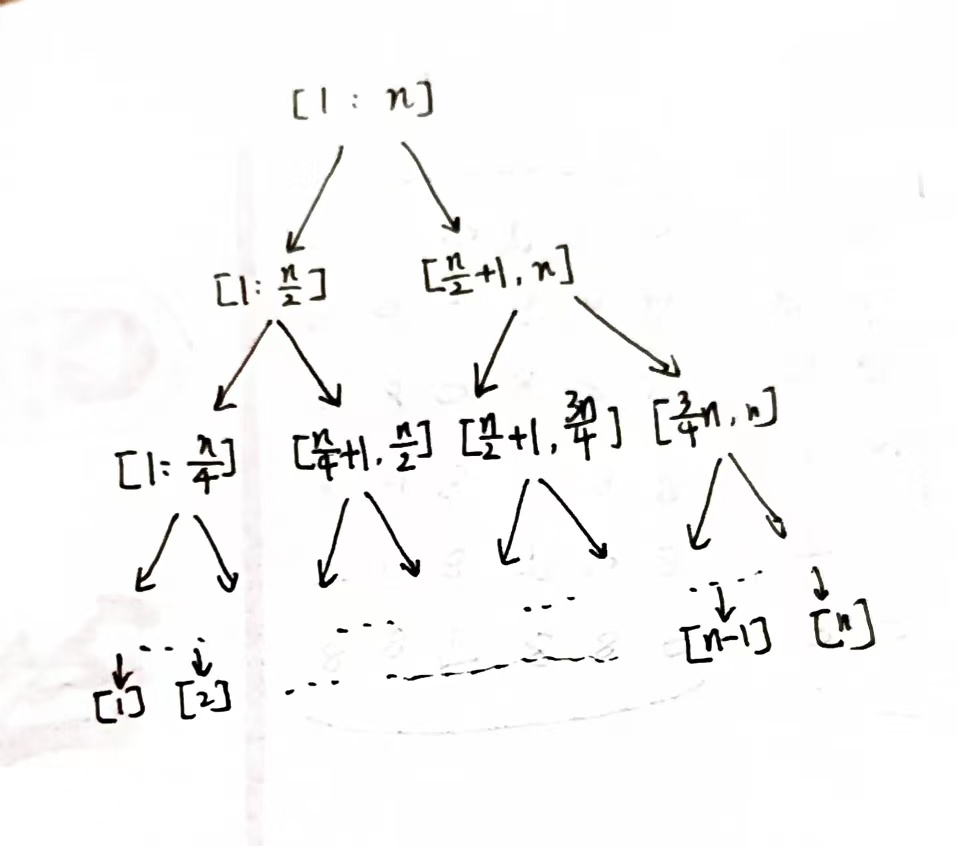 [1 : n]
[1: n/2] [n/2+1, n]
[1: n/4] [n/4+1, n/2] [n/2+1, 3n/4] [3/4n, n]
... ... ... ...
[n-1] [n]
[1] [2] ... ...